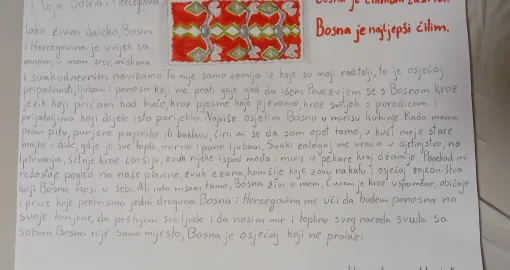 Moja Bosna i Hercegovina
Bosna je najljepši ćilim.
Iako živim daleko, Bosna
i Hercegovina je uvijek sa
mnom, u mom srcu, mislima
i svakodnevnim navikama. To nije samo zemlja iz koje su moji roditelji, to je osjećaj
pripadnosti, ljubavi i ponosa koji me prati gdje god da idem. Povezujem se s Bosnom kroz
jezik koji pričam kod kuće, kroz pjesme koje pjevamo, kroz smijeh s porodicom i
prijateljima koji dijele isto porijeklo. Najviše osjetim Bosnu u mirisu kuhinje. Kada mama
pravi pitu, punjene paprike ili baklavu, čini mi se da sam opet tamo, u kući moje stare
majke i dide, gdje je sve toplo, mirno i puno ljubavi. Svaki zalogaj me vraća u djetinjstvo, na
ljetovanja, šetnje kroz čaršiju, zvuk rijeke ispod mosta i miris iz pekare kraj džamije. Ponekad mi
nedostaje pogled na naše planine, zvuk ezana, komšije koje zovu na kafu i osjećaj zajedništva
koji Bosna nosi u sebi. Ali iako nisam tamo, Bosna živi u meni. Čuvam je kroz uspomene, običaje
i priče koje prenosimo jedni drugima. Bosna i Hercegovina me uči da budem ponosna na
svoje korijene, da poštujem sve ljude i da nosim mir i toplinu svog naroda svuda sa
sobom. Bosna nije samo mjesto, Bosna je osjećaj koji ne prolazi.